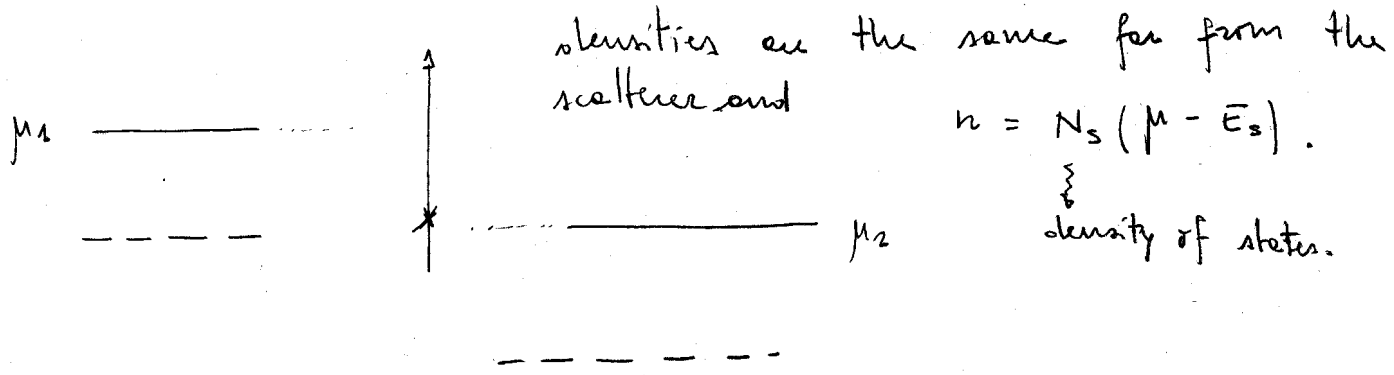 densities are the same far from the
scatterer and
n = N_s ( μ - E̅_s ) .
μ_1
μ_2
density of states.